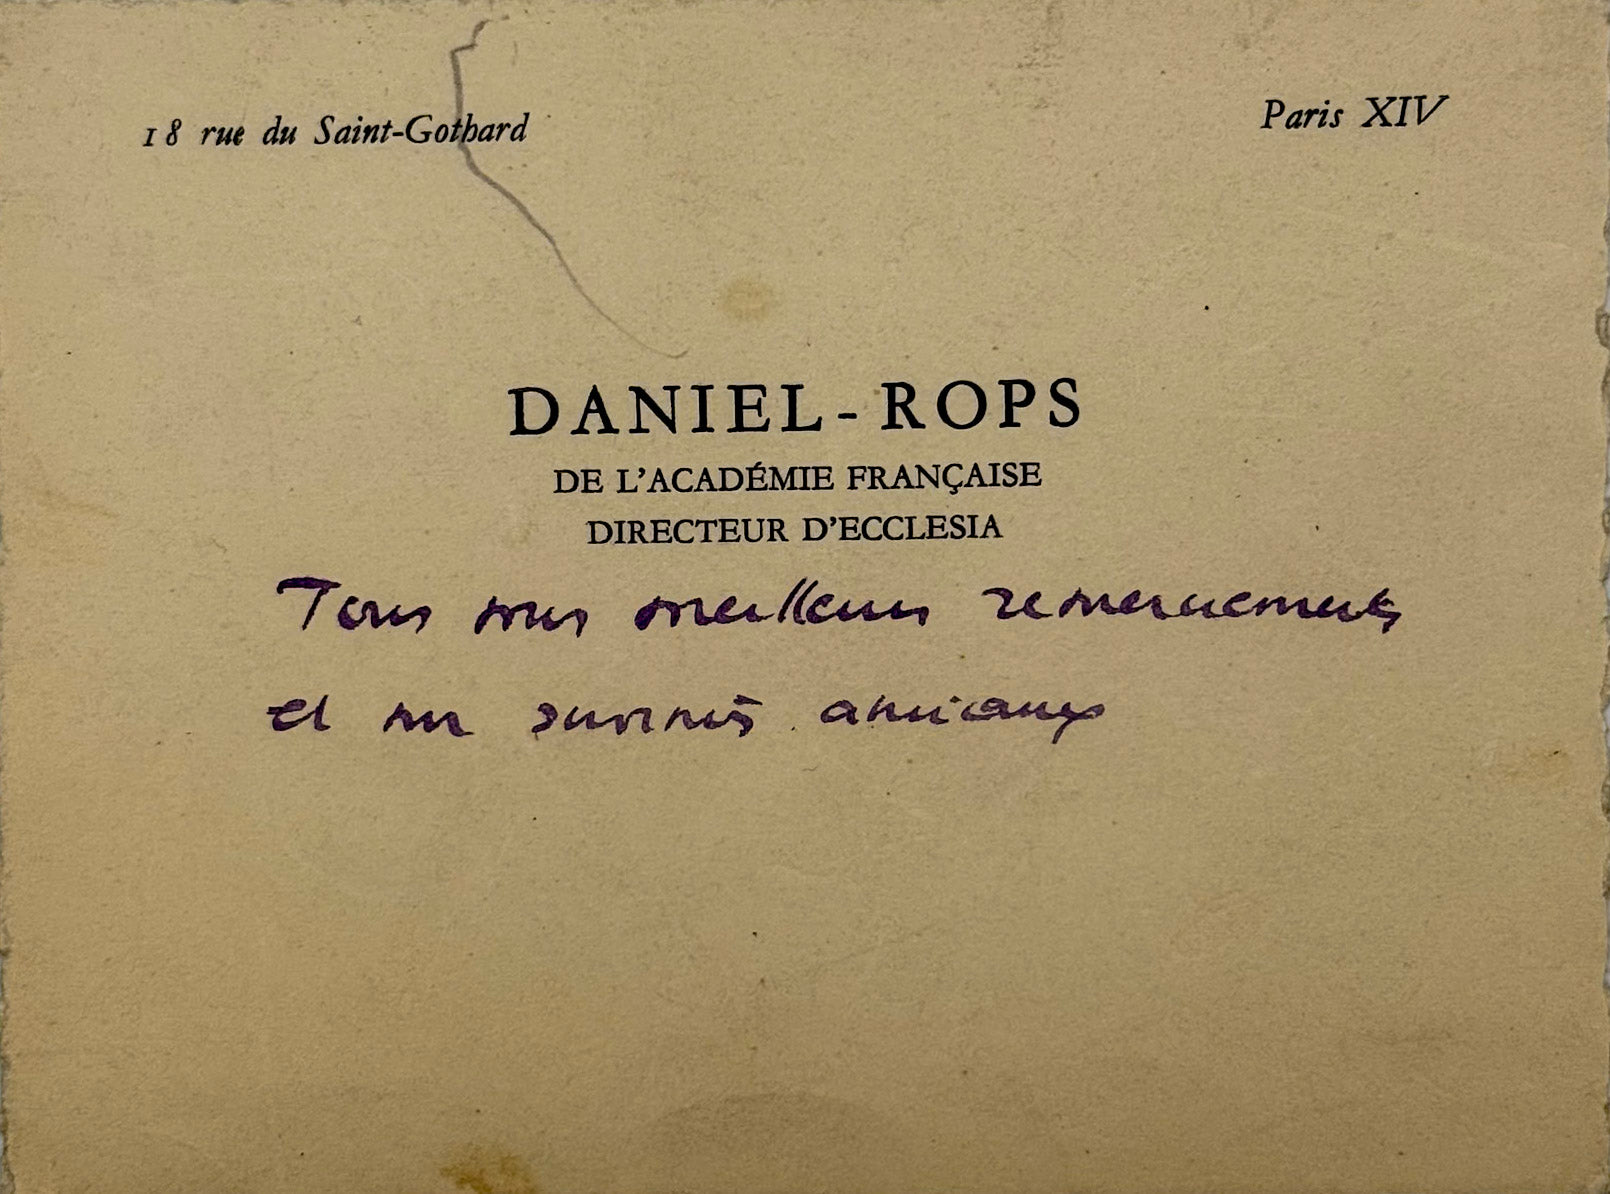 18 rue du Saint-Gothard
Paris XIV
DANIEL-ROPS
DE L'ACADÉMIE FRANÇAISE
DIRECTEUR D'ECCLESIA
Tous mes meilleurs remerciements
et mes souvenirs amicaux